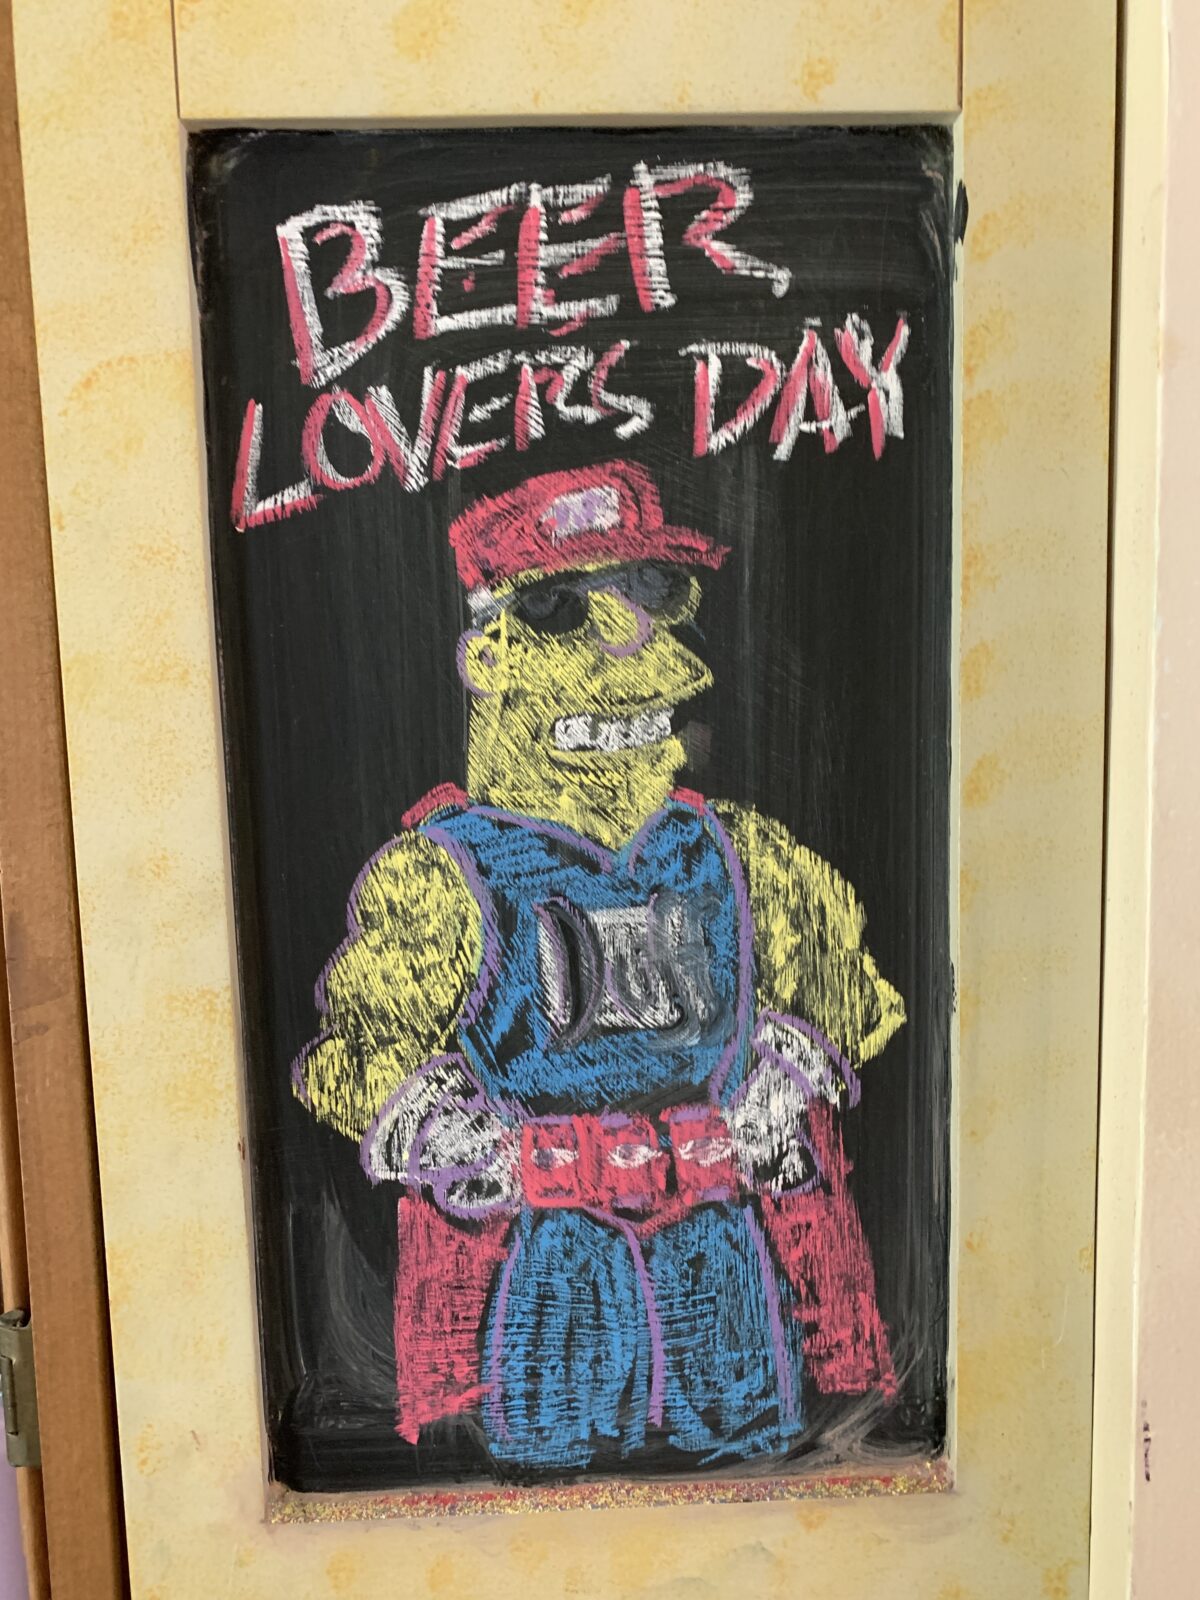 BEER
LOVERS DAY
Duff